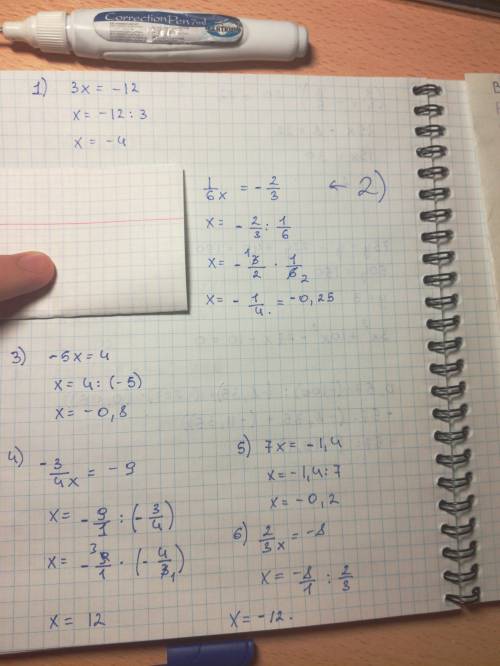 Correction Pen 7ml
1) 3x = -12
x = -12 : 3
x = -4
1/6 x = - 2/3 ← 2)
x = - 2/3 : 1/6
x = - 3/2 · 1/6 1 2
x = - 1/4 . = -0,25
3) -5x = 4
x = 4 : (-5)
x = -0,8
4) - 3/4 x = -9
x = - 9/1 : (- 3/4)
x = - 9/1 · (- 4/3) 3 1
x = 12
5) 7x = -1,4
x = -1,4 : 7
x = -0,2
6) 2/3 x = -8
x = -8/1 : 2/3
x = -12.